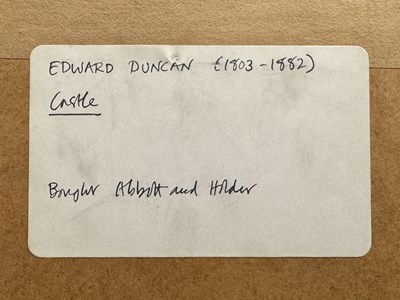 EDWARD DUNCAN (1803-1882)
Castle
Bought Abbott and Holder